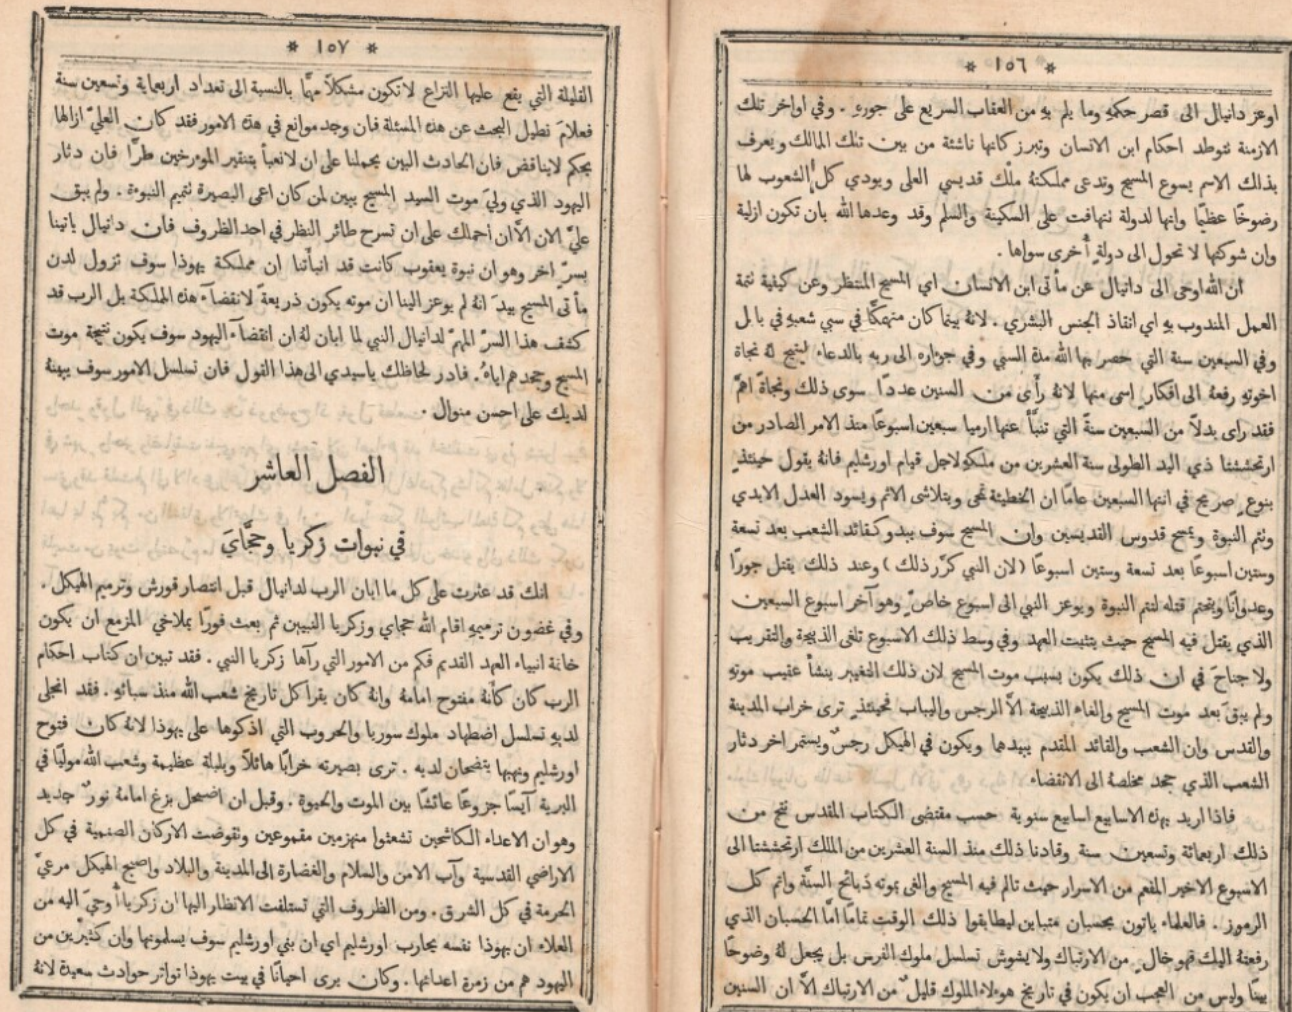 * ١٥٦ *
اوعز دانيال الى قصر حكمهِ وما يلم بهِ من العقاب السريع على جورهِ . وفي اواخر تلك
الازمنة تتوطد احكام ابن الانسان وتبرز كانها ناشئة من بين تلك المالك ويعرف
بذلك الاسم يسوع المسيح وتدعى مملكتهُ ملك قديسي العلى ويودي كل الشعوب لها
رضوخًا عظيمًا وانها لدولة تتهافت على السكينة والسلم وقد وعدها الله بان تكون ازلية
وان شوكتها لا تحول الى دولةٍ أُخرى سواها .
ان الله اوحى الى دانيال عن مأتى ابن الانسان اي المسيح المنتظر وعن كيفية تتمة
العمل المندوب بهِ اي انقاذ الجنس البشري . لانهُ بينما كان منهمكًا في سبي شعبهِ في بابل
وفي السبعين سنة التي حصر بها الله مدة السبي وفي جؤاره الى ربهِ بالدعاء ليتيح لهُ نجاة
اخوتهِ رفعهُ الى افكارٍ اسمى منها لانهُ رأَى من السنين عددًا سوى ذلك ونجاةً اهمَّ
فقد راى بدلاً من السبعين سنةً التي تنبَّأَ عنها ارميا سبعين اسبوعًا منذ الامر الصادر من
ارتحششتا ذي اليد الطولى سنة العشرين من ملكهِ لاجل قيام اورشليم فانهُ يقول حينئذٍ
بنوعٍ صريح في انتها السبعين عامًا ان الخطيئة تمحى ويتلاشى الاثم ويسود العدل الابدي
وتتم النبوة ويمسح قدوس القديسين وان المسيح سوف يبدو كقائد الشعب بعد تسعة
وستين اسبوعًا بعد تسعة وستين اسبوعًا (لان النبي كرَّر ذلك) وعند ذلك يقتل جورًا
وعدوانًا ويتحتم قتله لتتم النبوة ويوعز النبي الى اسبوع خاصٍّ وهو آخر اسبوع السبعين
الذي يقتل فيهِ المسيح حيث يتثبت العهد وفي وسط ذلك الاسبوع تلغى الذبيحة والتقريب
ولا جناحَ في ان ذلك يكون بسبب موت المسيح لان ذلك التغيير ينشأ عقيب موتهِ
ولم يبقَ بعد موت المسيح والغاء الذبيحة الاَّ الرجس واليباب فحينئذٍ ترى خراب المدينة
والقدس وان الشعب والقائد المقدم يبيدها ويكون في الهيكل رجسٌ ويستمر اخر دثار
الشعب الذي جحد مخلصهُ الى الانقضاء
فاذا اريد بهذه الاسابيع اسابيع سنوية حسب مقتضى الكتاب المقدس نتج من
ذلك اربعمائة وتسعين سنة وقادنا ذلك منذ السنة العشرين من الملك ارتحششتا الى
الاسبوع الاخير المفعم من الاسرار حيث تالم فيه المسيح والغى بموته ذبائح السنَّة واتم كل
الرموز . فالعلماء ياتون بحسبان متباين ليطابقوا ذلك الوقت تمامًا امَّا الحسبان الذي
رفعتهُ اليك فهو خالٍ من الارتباك ولا يشوش تسلسل ملوك الفرس بل يجعل لهُ وضوحًا
بيّنًا وليس من العجب ان يكون في تاريخ هولاء الملوك قليلٌ من الارتباك الاَّ ان السنين
* ١٥٧ *
القليلة التي يقع عليها النزاع لا تكون مشكلاً مهمًّا بالنسبة الى تعداد اربعماية وتسعين سنة
فعلامَ نطيل البحث عن هذه المسئلة فان وجد موانع في هذه الامور فقد كان العليّ ازالها
بحكم لا يناقض فان الحادث البين يحملنا على ان لا نعبأ بتنقير المورخين طرًّا فان دثار
اليهود الذي وليَ موت السيد المسيح يبين لمن كان اعمى البصيرة تتميم النبوءة . ولم يبق
عليَّ الان الاَّ ان احملك على ان تسرح طائر النظر في احد الظروف فان دانيال ياتينا
بسرٍّ اخر وهو ان نبوة يعقوب كانت قد انبأَتنا ان مملكة يهوذا سوف تزول لدن
مأتى المسيح بيدَ انهُ لم يوعز الينا ان موته يكون ذريعةً لانقضآء هذه المملكة بل الرب قد
كشف هذا السرّ المهمّ لدانيال النبي لما ابان لهُ ان انقضآء اليهود سوف يكون نتيجة موت
المسيح وجحدهم اياهُ . فادر لحاظك ياسيدي الى هذا القول فان تسلسل الامور سوف يبينهُ
لديك على احسن منوال .
الفصل العاشر
في نبوات زكريا وحجَّايَ
انك قد عثرت على كل ما ابان الرب لدانيال قبل انتصار قورش وترميم الهيكل .
وفي غضون ترميمهِ اقام الله حجاي وزكريا النبيين ثم بعث فورًا بملاخي المزمع ان يكون
خاتمة انبياء العهد القديم فكم من الامور التي رآها زكريا النبي . فقد تبين ان كتاب احكام
الرب كان كأنهُ مفتوح امامهُ وانهُ كان يقرا كل تاريخ شعب الله منذ سبائهِ . فقد انجلى
لديهِ تسلسل اضطهاد ملوك سوريا والحروب التي اذكوها على يهوذا لانهُ كان فتوح
اورشليم ونهبها يتضحان لديه . ترى بصيرته خرابًا هائلاً وبلبلة عظيمة وشعب الله موليًا في
البرية آيسًا جزوعًا عائشًا بين الموت والحيوة . وقبل ان اضمحل بزغ امامهُ نورٌ جديد
وهو ان الاعداء الكاشحين تشعثوا منهزمين مقموعين وتقوضت الاركان الصنمية في كل
الاراضي القدسية وآب الامن والسلام والغضارة الى المدينة والبلاد واصبح الهيكل مرعيَّ
الحرمة في كل الشرق . ومن الظروف التي تستلفت الانظار اليها ان زكريا أُوحيَ اليه من
العلاء ان يهوذا نفسه يحارب اورشليم اي ان بني اورشليم سوف يسلمونها وان كثيرين من
اليهود هم من زمرة اعدائها . وكان يرى احيانًا في بيت يهوذا تواتر حوادث سعيدة لانهُ